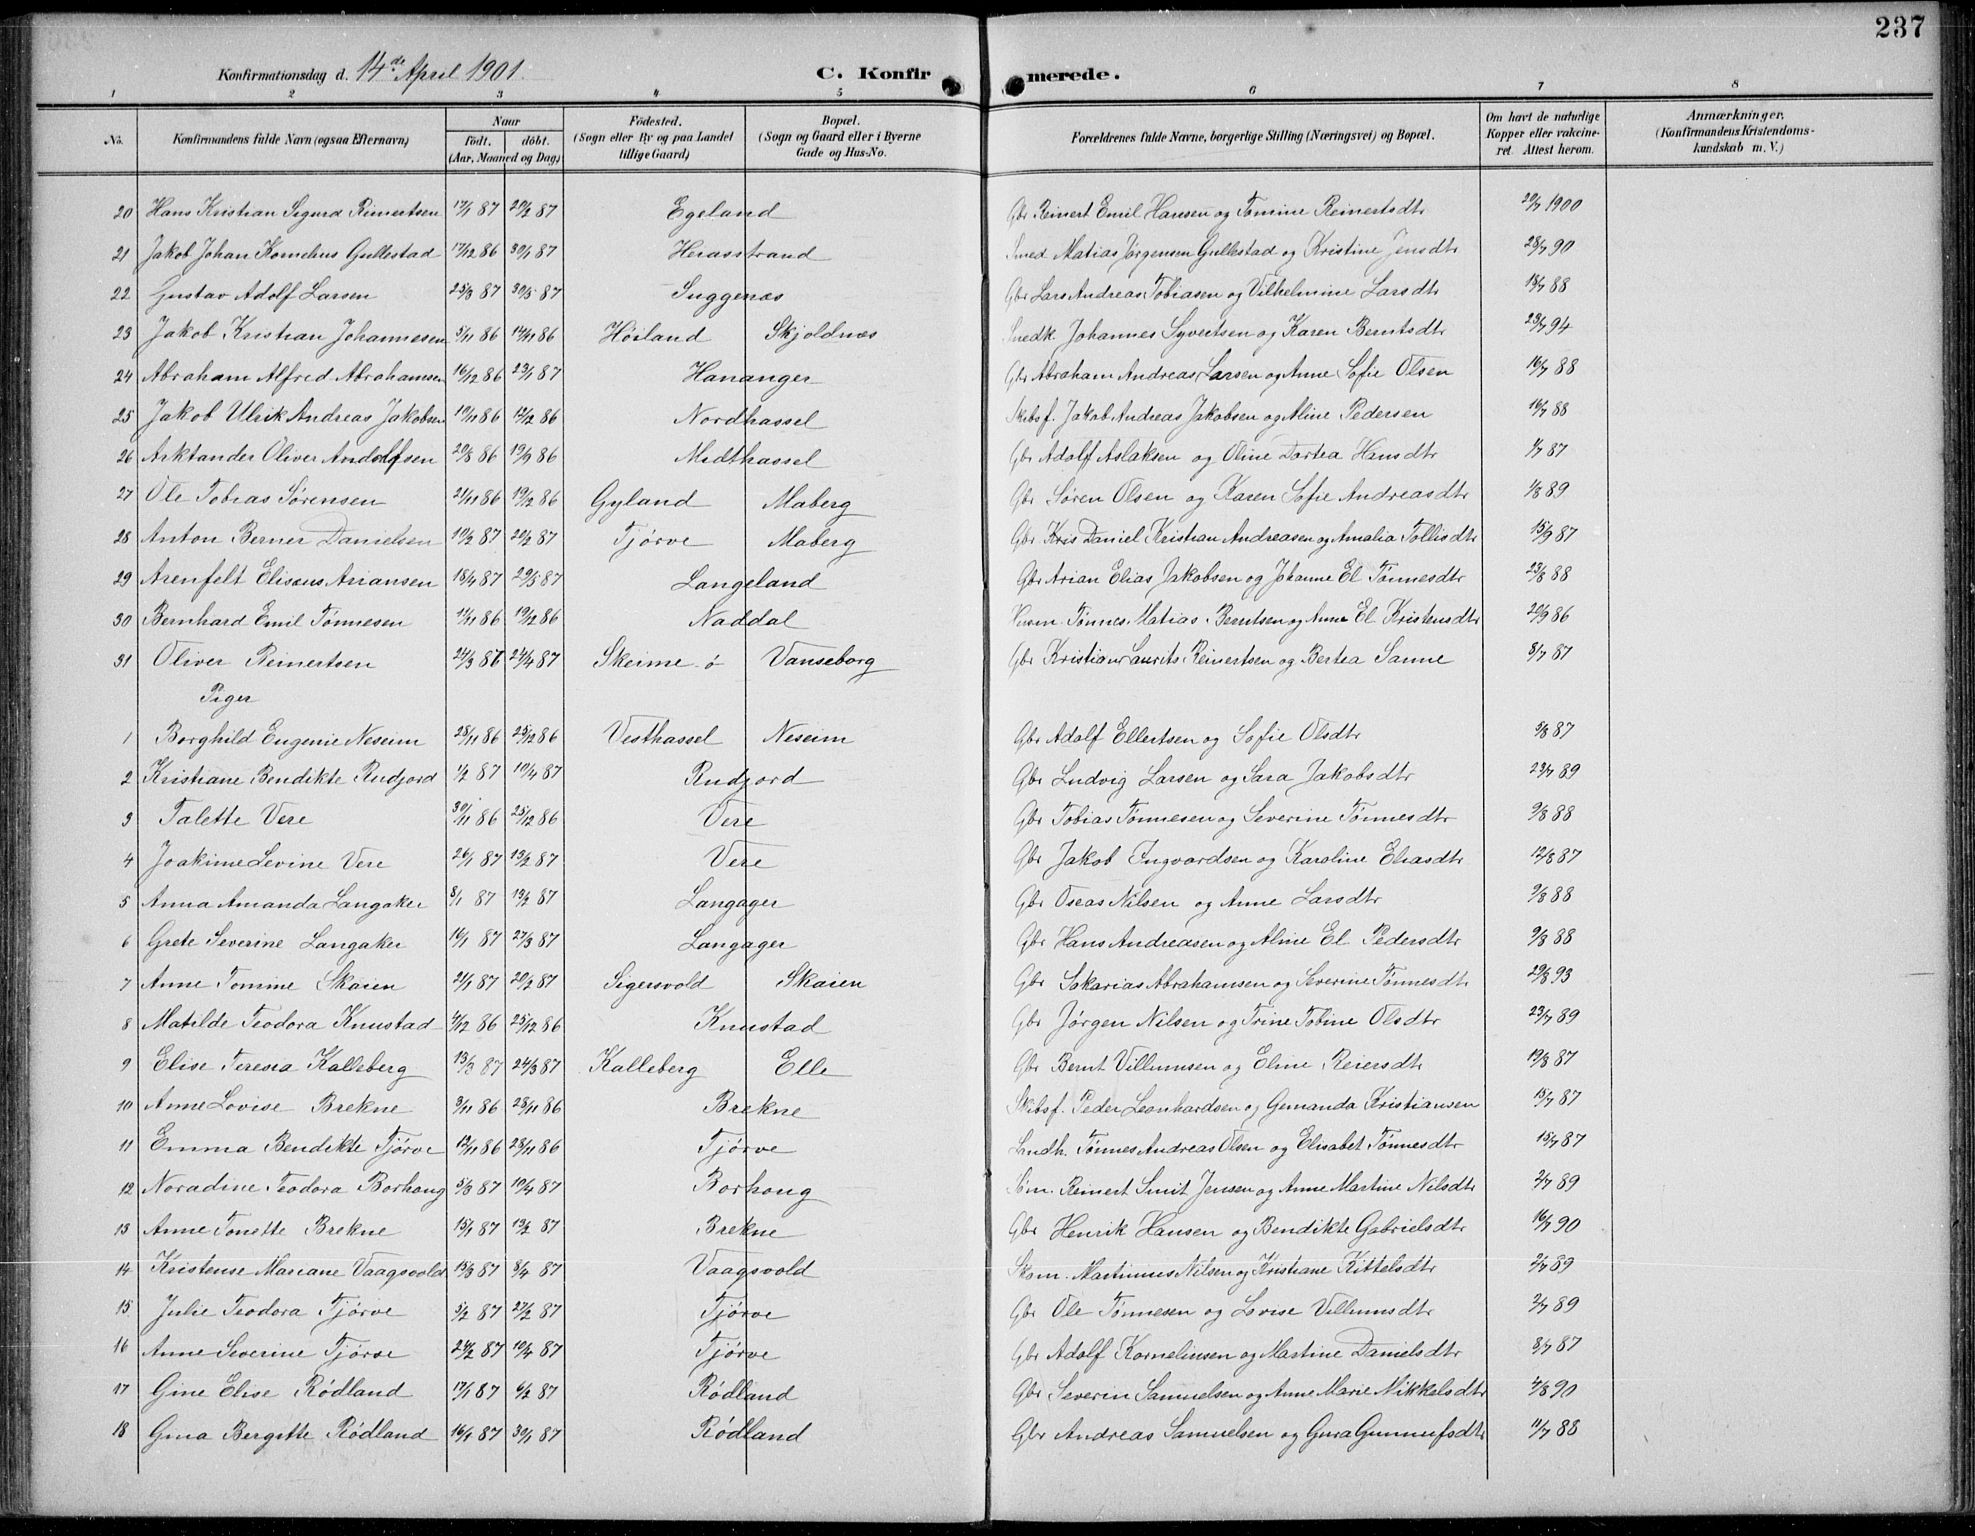 237
Konfirmationsdag d. 14de April 1901. C. Konfirmerede.
1 2 3 4 5 6 7 8
No. Konfirmandens fulde Navn (ogsaa Efternavn) Naar födt. döbt. (Aar, Maaned og Dag) Födested. (Sogn eller By og paa Landet tillige Gaard) Bopæl. (Sogn og Gaard eller i Byerne Gade og Hus-No. Forældrenes fulde Navne, borgerlige Stilling (Næringsvei) og Bopæl. Om havt de naturlige Kopper eller vakcineret. Attest herom. Anmærkninger. (Konfirmandens Kristendomskundskab m. V.)
20 Hans Kristian Sigurd Reinertsen 17/1 87 20/2 87 Egeland Gbr Reinert Emil Hansen og Tomine Reinertsdtr 20/7 1900
21 Jakob Johan Kornelius Gullestad 17/12 86 30/1 87 Herasstrand Smed Matias Jørgensen Gullestad og Kristine Jensdtr 28/7 90
22 Gustav Adolf Larsen 23/3 87 30/5 87 Suggenæs Gbr Lars Andreas Tobiasen og Vilhelmine Larsdtr 13/7 88
23 Jakob Kristian Johannesen 5/11 86 14/11 86 Höiland Skjoldnæs Snedk. Johannes Syvertsen og Karen Berntsdtr 23/7 94
24 Abraham Alfred Abrahamsen 16/12 86 23/1 87 Hananger Gbr Abraham Andreas Larsen og Anne Sofie Olsen 16/7 88
25 Jakob Ulrik Andreas Jakobsen 19/11 86 12/12 86 Nordhassel Skibsf. Jakob Andreas Jakobsen og Aline Pedersen 16/7 88
26 Arktander Oliver Andolfsen 20/8 86 19/9 86 Midthassel Gbr Adolf Aslaksen og Oline Dortea Hansdtr 1/7 87
27 Ole Tobias Sørensen 21/11 86 19/12 86 Gyland Maberg Gbr Søren Olsen og Karen Sofie Andreasdtr 1/8 89
28 Anton Berner Danielsen 10/2 87 20/2 87 Tjørve Maberg Gbr Daniel Kristian Andreasen og Amalia Tollisdtr 15/9 87
29 Arenfelt Eliseus Ariansen 18/4 87 29/5 87 Langeland Gbr Arian Elias Jakobsen og Johanne El Tønnesdtr 23/8 88
30 Bernhard Emil Tønnesen 11/11 86 19/12 86 Naddal Husm Tønnes Matias Berntsen og Anne El Kristensdtr 20/9 86
31 Oliver Reinertsen 24/3 87 24/4 87 Skeime ø Vanseborg Gbr Kristian Laurits Reinertsen og Bertea Sanne 8/7 87
Piger
1 Borghild Eugenie Neseim 28/11 86 25/12 86 Vesthassel Neseim Gbr Adolf Ellertsen og Sofie Olsdtr 5/8 87
2 Kristiane Bendikte Rudjord 1/2 87 10/4 87 Rudjord Gbr Ludvig Larsen og Sara Jakobsdtr 23/7 89
3 Talette Vere 30/11 86 25/12 86 Vere Gbr Tobias Tønnesen og Severine Tønnesdtr 9/8 88
4 Joakime Levine Vere 26/1 87 13/2 87 Vere Gbr Jakob Ingvardsen og Karoline Eliasdtr 12/8 87
5 Anna Amanda Langaker 8/1 87 13/2 87 Langager Gbr Oseas Nilsen og Anne Larsdtr 9/8 88
6 Grete Severine Langaker 16/1 87 27/3 87 Langager Gbr Hans Andreasen og Aline El Pedersdtr 9/8 88
7 Anne Tomine Skaien 21/1 87 20/2 87 Sigersvold Skaien Gbr Sakarias Abrahamsen og Severine Tønnesdtr 29/8 93
8 Matilde Teodora Knustad 4/12 86 25/12 86 Knustad Gbr Jørgen Nilsen og Trine Tobine Olsdtr 23/7 89
9 Elise Teresia Kalleberg 13/3 87 24/3 87 Kalleberg Elle Gbr Bernt Villumsen og Eline Reiersdtr 19/8 87
10 Anne Lovise Brekne 3/11 86 28/11 86 Brekne Skibsf. Peder Leonhardsen og Gemanda Kristiansen 15/7 87
11 Emma Bendikte Tjörve 12/11 86 28/11 86 Tjørve Landh. Tønnes Andreas Olsen og Elisabet Tønnesdtr 15/7 87
12 Noradine Teodora Borhoug 5/3 87 10/4 87 Borhoug Sóm. Reinert Smit Jensen og Anne Martine Nilsdtr 2/7 89
13 Anne Tonette Brekne 15/1 87 13/2 87 Brekne Gbr Henrik Hansen og Bendikte Gabrielsdtr 16/7 90
14 Kristense Mariane Vaagsvold 13/3 87 8/4 87 Vaagsvold Skom. Martinius Nilsen og Kristiane Kittelsdtr 2/7 89
15 Julie Teodora Tjörve 5/2 87 27/2 87 Tjörve Gbr Ole Tønnesen og Lovise Villumsdtr 2/7 89
16 Anne Severine Tjörve 24/2 87 10/4 87 Tjörve Gbr Adolf Korneliusen og Martine Danielsdtr 8/7 87
17 Gine Elise Rödland 17/1 87 6/2 87 Rödland Gbr Severin Samuelsen og Anne Marie Nikkelsdtr 4/8 90
18 Gina Bergitte Rödland 16/1 87 30/1 87 Rödland Gbr Andreas Samuelsen og Gura Gunnufsdtr 11/7 88